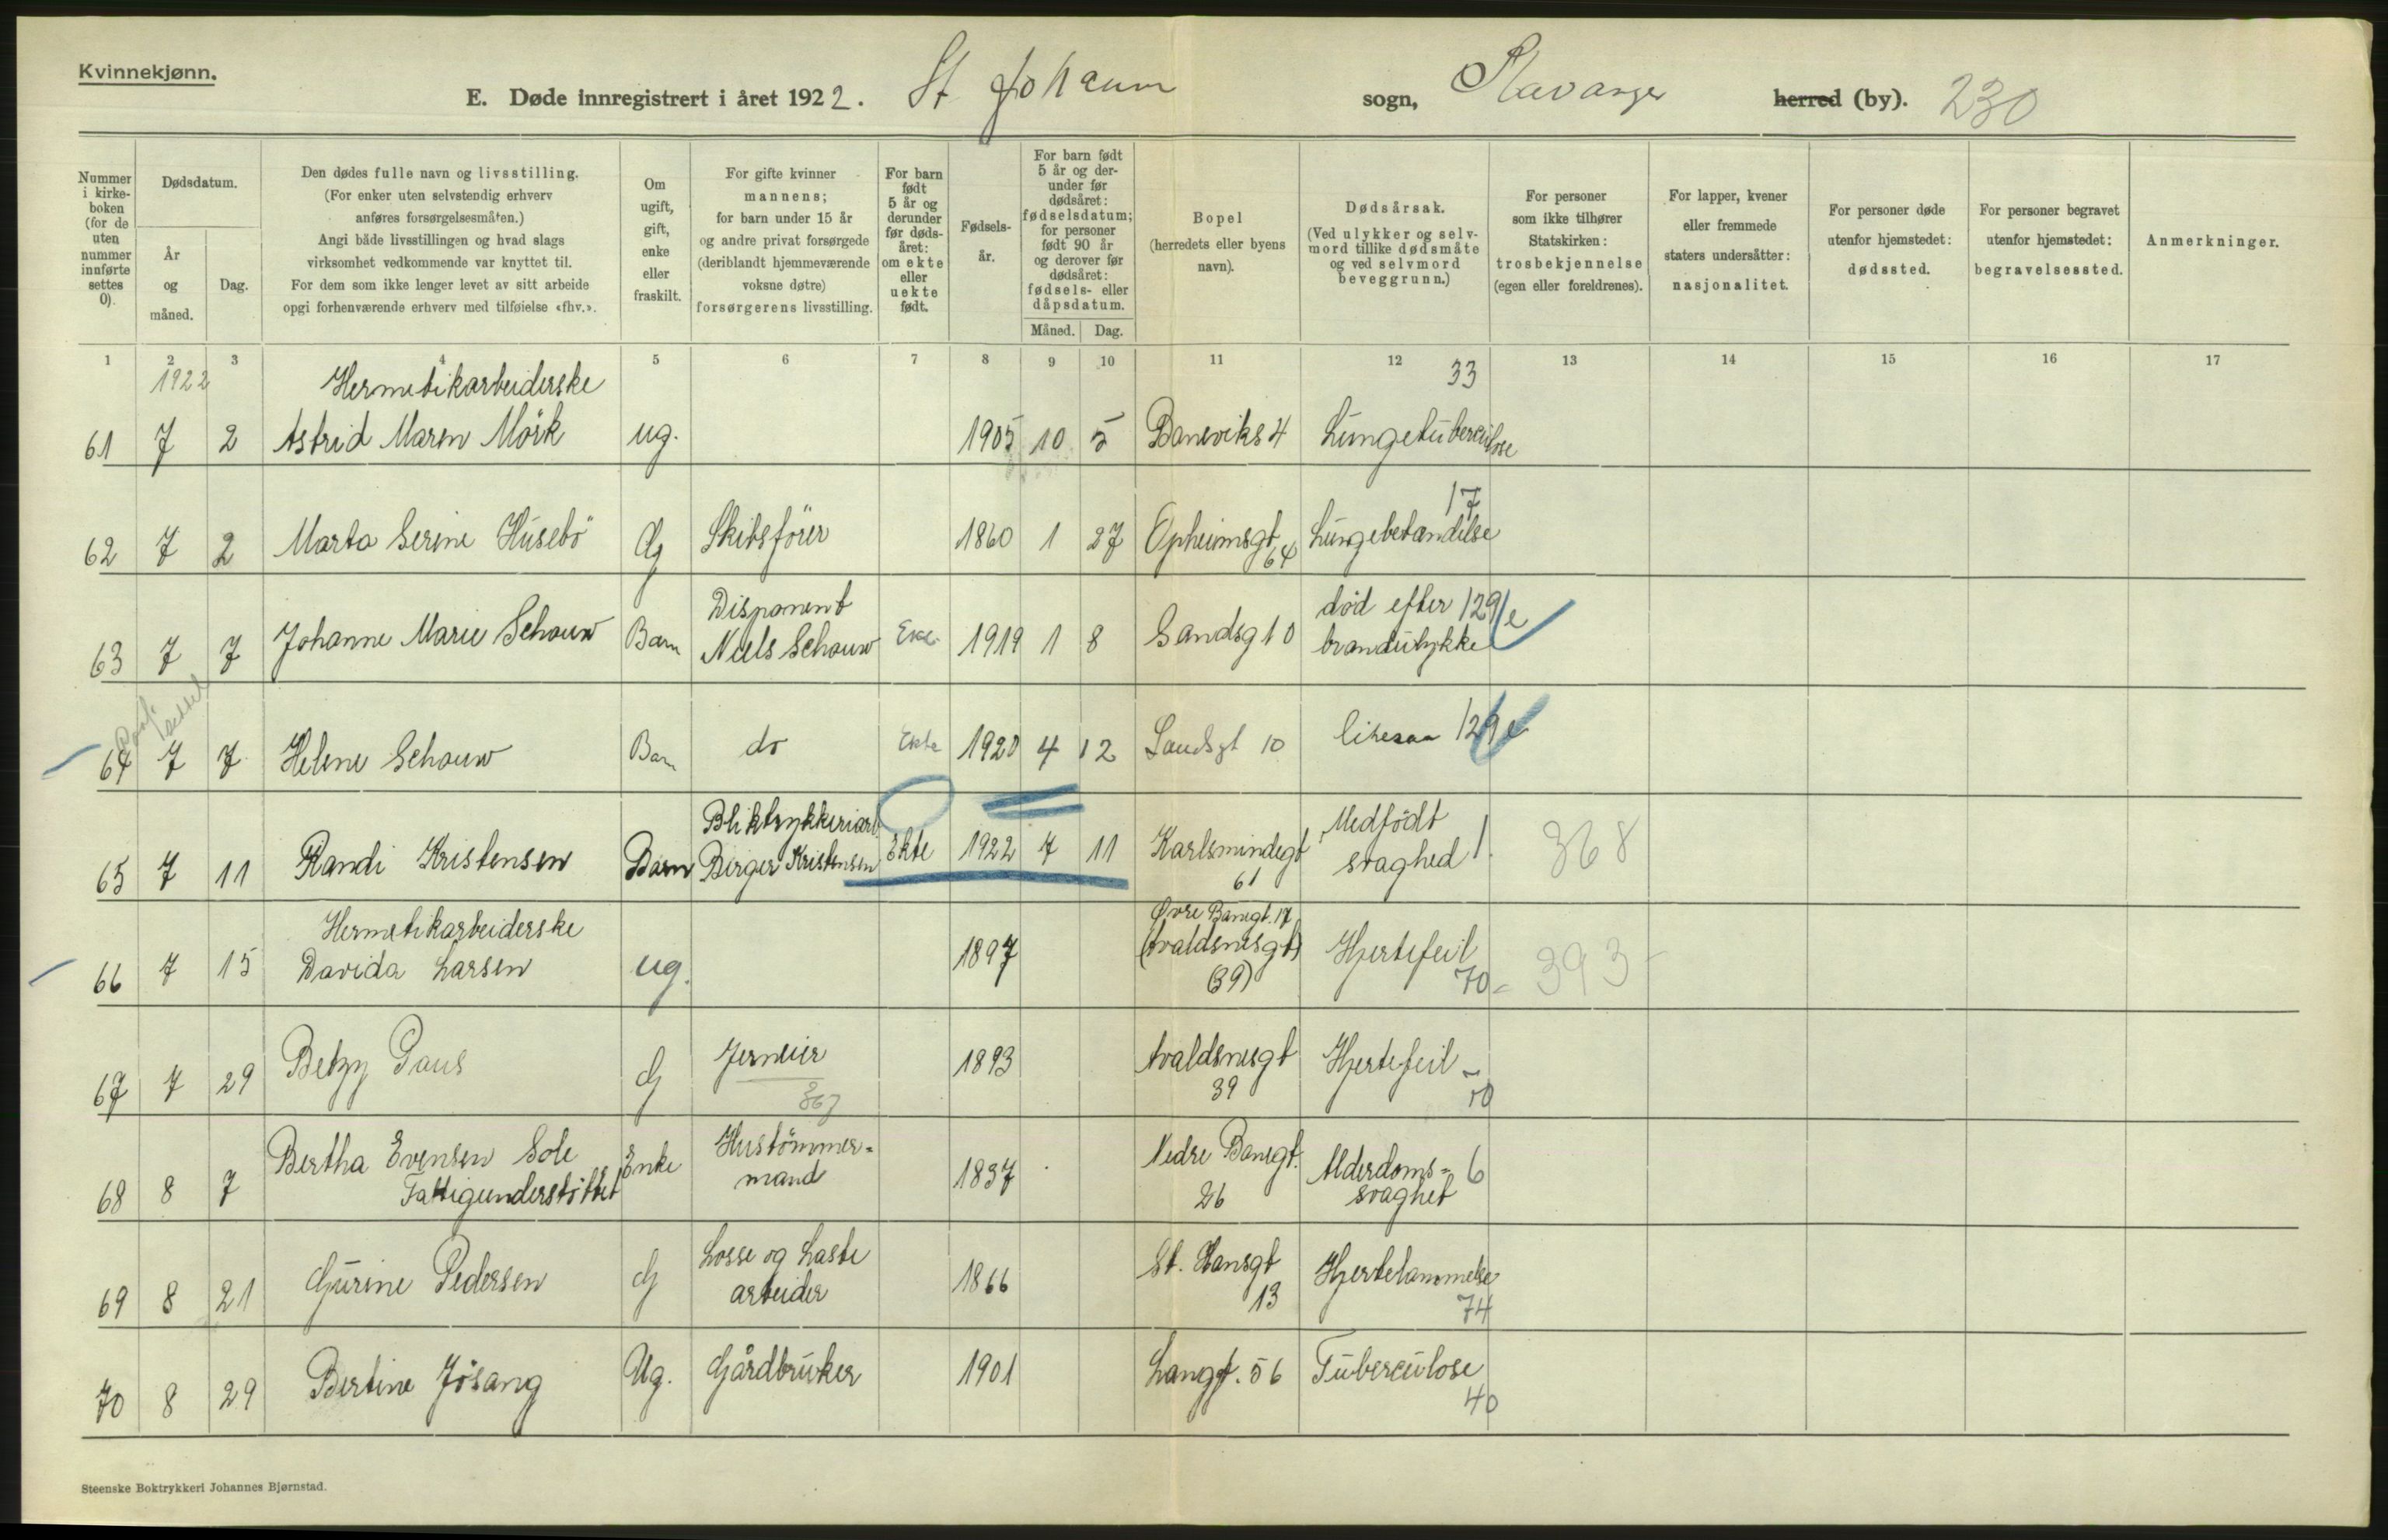 Kvinnekjønn.
E. Døde innregistrert i året 1922. St Johanns sogn, Stavanger herred (by). 230
Nummer i kirke-boken (for de uten nummer innførte settes 0).
Dødsdatum.
År og måned.
Dag.
Den dødes fulle navn og livsstilling.
(For enker uten selvstendig erhverv
anføres forsørgelsesmåten.)
Angi både livsstillingen og hvad slags
virksomhet vedkommende var knyttet til.
For dem som ikke lenger levet av sitt arbeide
opgi forhenværende erhverv med tilføielse «fhv.».
Om ugift, gift, enke eller fraskilt.
For gifte kvinner
mannens;
for barn under 15 år
og andre privat forsørgede
(deriblandt hjemmeværende
voksne døtre)
forsørgerens livsstilling.
For barn født 5 år og derunder før døds-året: om ekte eller uekte født.
Fødsels-år.
For barn født 5 år og der-under før dødsåret: fødselsdatum; for personer født 90 år og derover før dødsåret: fødsels- eller dåpsdatum.
Måned. Dag.
Bopel
(herredets eller byens
navn).
Dødsårsak.
(Ved ulykker og selv-
mord tillike dødsmåte
og ved selvmord
beveggrunn.)
For personer
som ikke tilhører
Statskirken:
trosbekjennelse
(egen eller foreldrenes).
For lapper, kvener
eller fremmede
staters undersåtter:
nasjonalitet.
For personer døde
utenfor hjemstedet:
dødssted.
For personer begravet
utenfor hjemstedet:
begravelsessted.
Anmerkninger.
1 2 3 4 5 6 7 8 9 10 11 12 13 14 15 16 17
1922 Hermetikarbeiderske 33
61 7 2 Astrid Maren Mörk ug. 1905 10 5 Baneviks 4 Lungetuberculose
17
62 7 2 Marta Serine Husebö G Skibsförer 1860 1 27 Opheimsgt 64 Lungebetændelse
Disponent død efter 129 e
63 7 7 Johanne Marie Schouw Barn Niels Schouw Ekte 1919 1 8 Sandsg 10 brandulykke
64 7 7 Helene Schouw Barn do Ekte 1920 4 12 Sandsgt 10 likesaa 129 e
Bliktrykkeriarb. Medfödt
65 7 11 Randi Kristensen Barn Birger Kristensen Ekte 1922 7 11 Karlsmindegt 61 svaghed 1. 368
Hermetikarbeiderske Øvre Banegt. 17
66 7 15 Davida Larsen ug. 1897 (Avaldsnesgt) (39) Hjertefeil 70 - 393 -
67 7 29 Betzy Paus G Jerneier 1893 Avaldsnesgt 39 Hjertefeil - 70
867
68 8 7 Bertha Evensen Sole Enke Hustömmer= 1837 Nedre Banegt. Alderdoms= 6
Fattigunderstöttet mand 26 svaghet
Losse og Laste
69 8 21 Gurine Pedersen G arbeider 1866 St. Hansgt 13 Hjertelammelse 74
70 8 29 Bertine Jösang Ug. Gårdbruker 1901 Langgt. 56 Tuberculose 40
Steenske Boktrykkeri Johannes Bjørnstad.